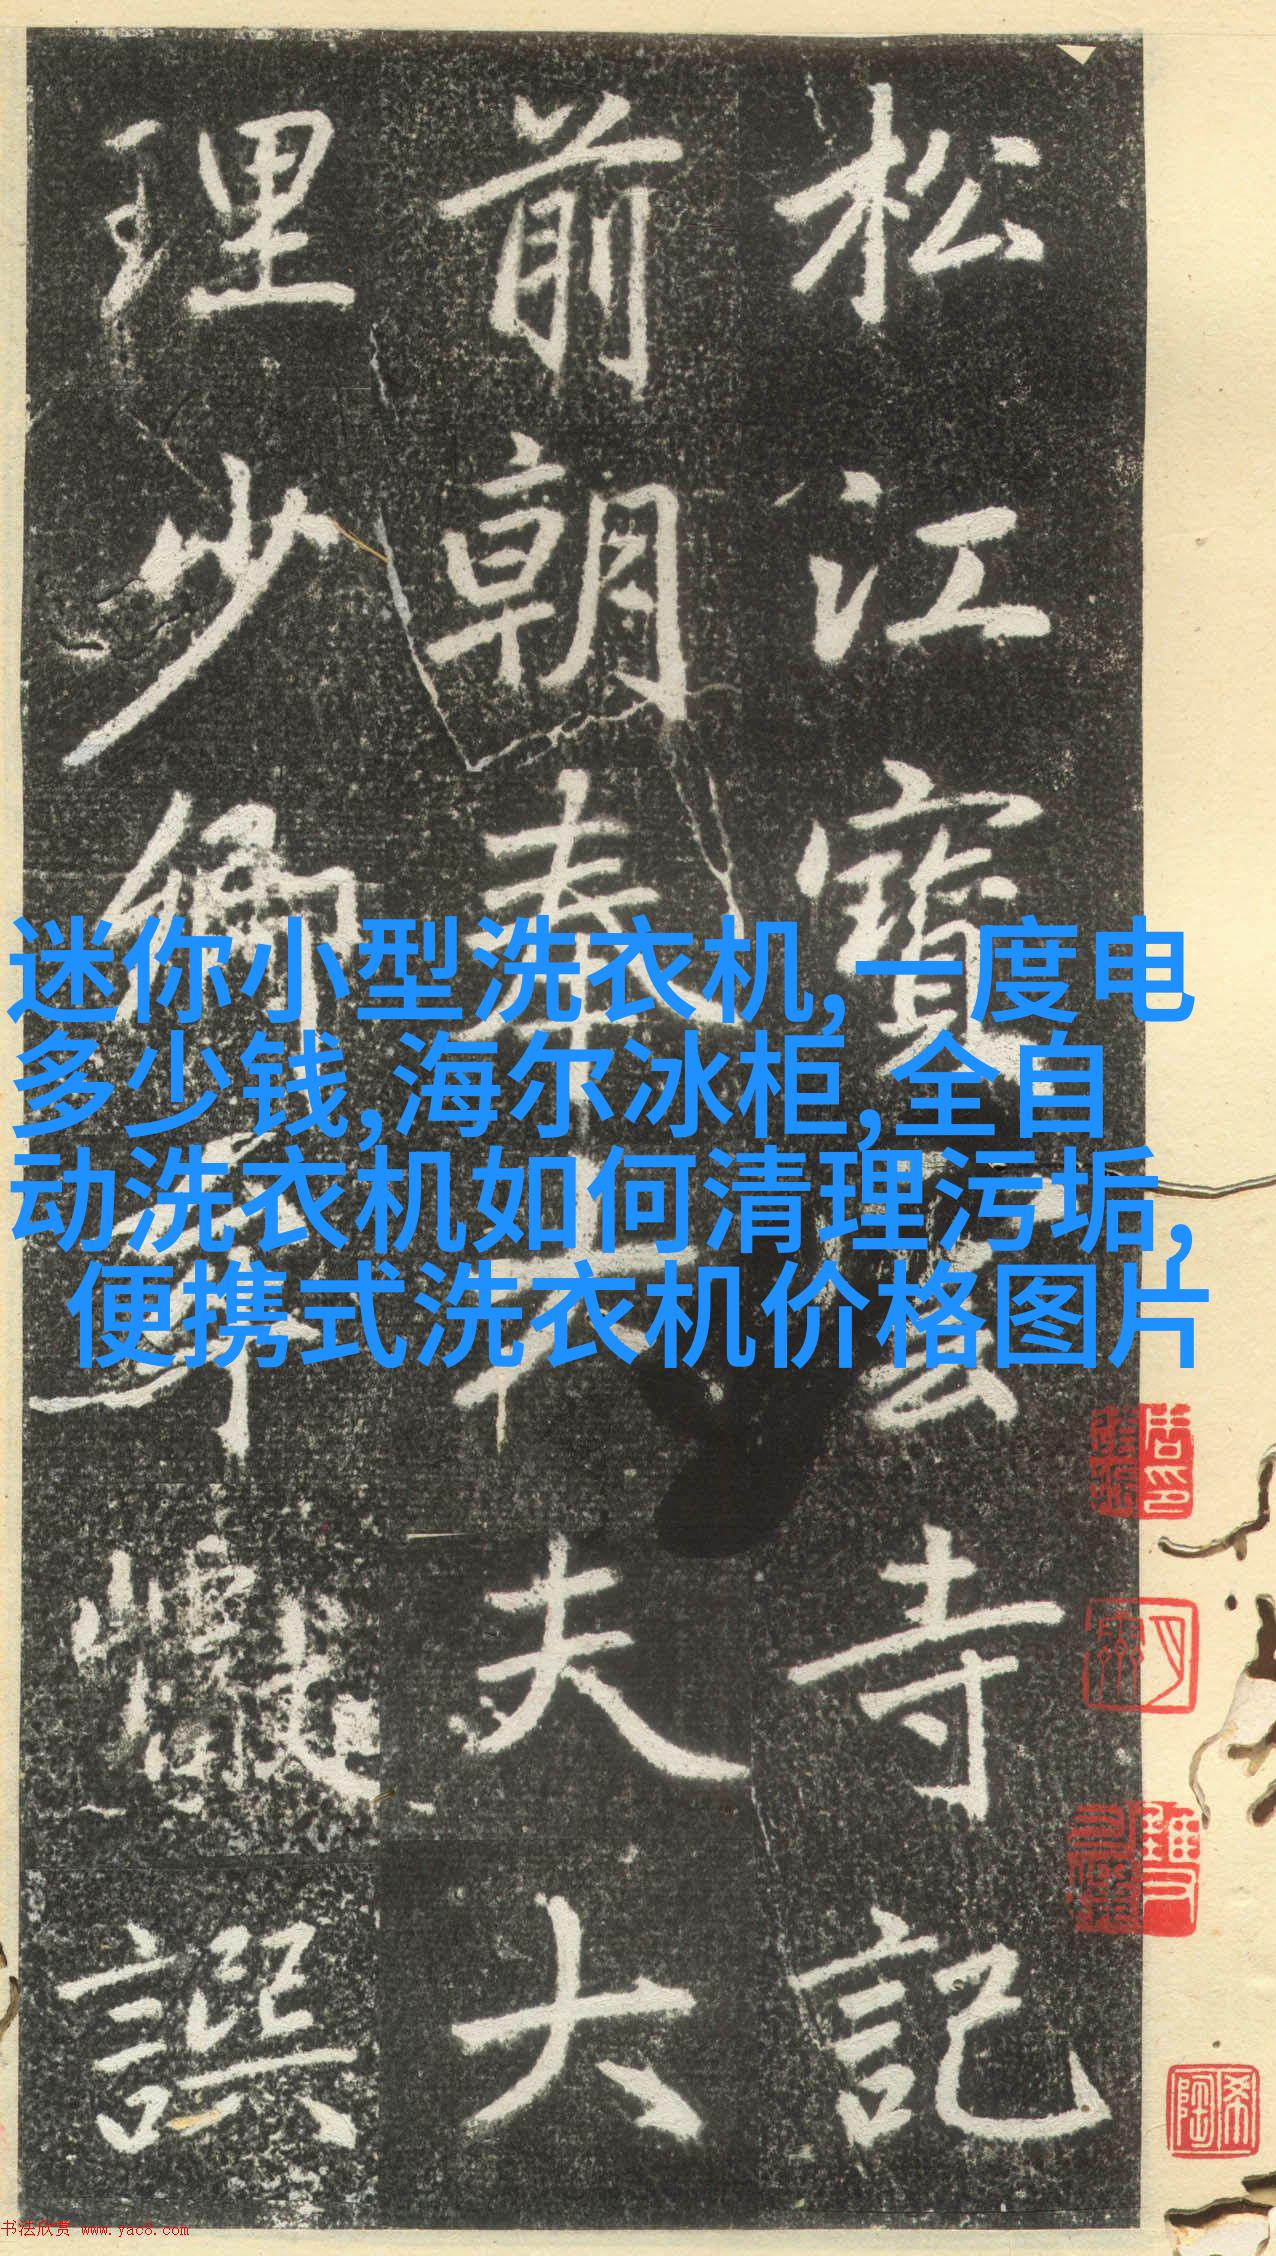 松江寶雲寺記
前朝奉大夫大
理少卿牟巘譔
迷你小型洗衣机,一度电
多少钱,海尔冰柜,全自
动洗衣机如何清理污垢,
便携式洗衣机价格图片
希陶
书法欣赏 www.yac8.com